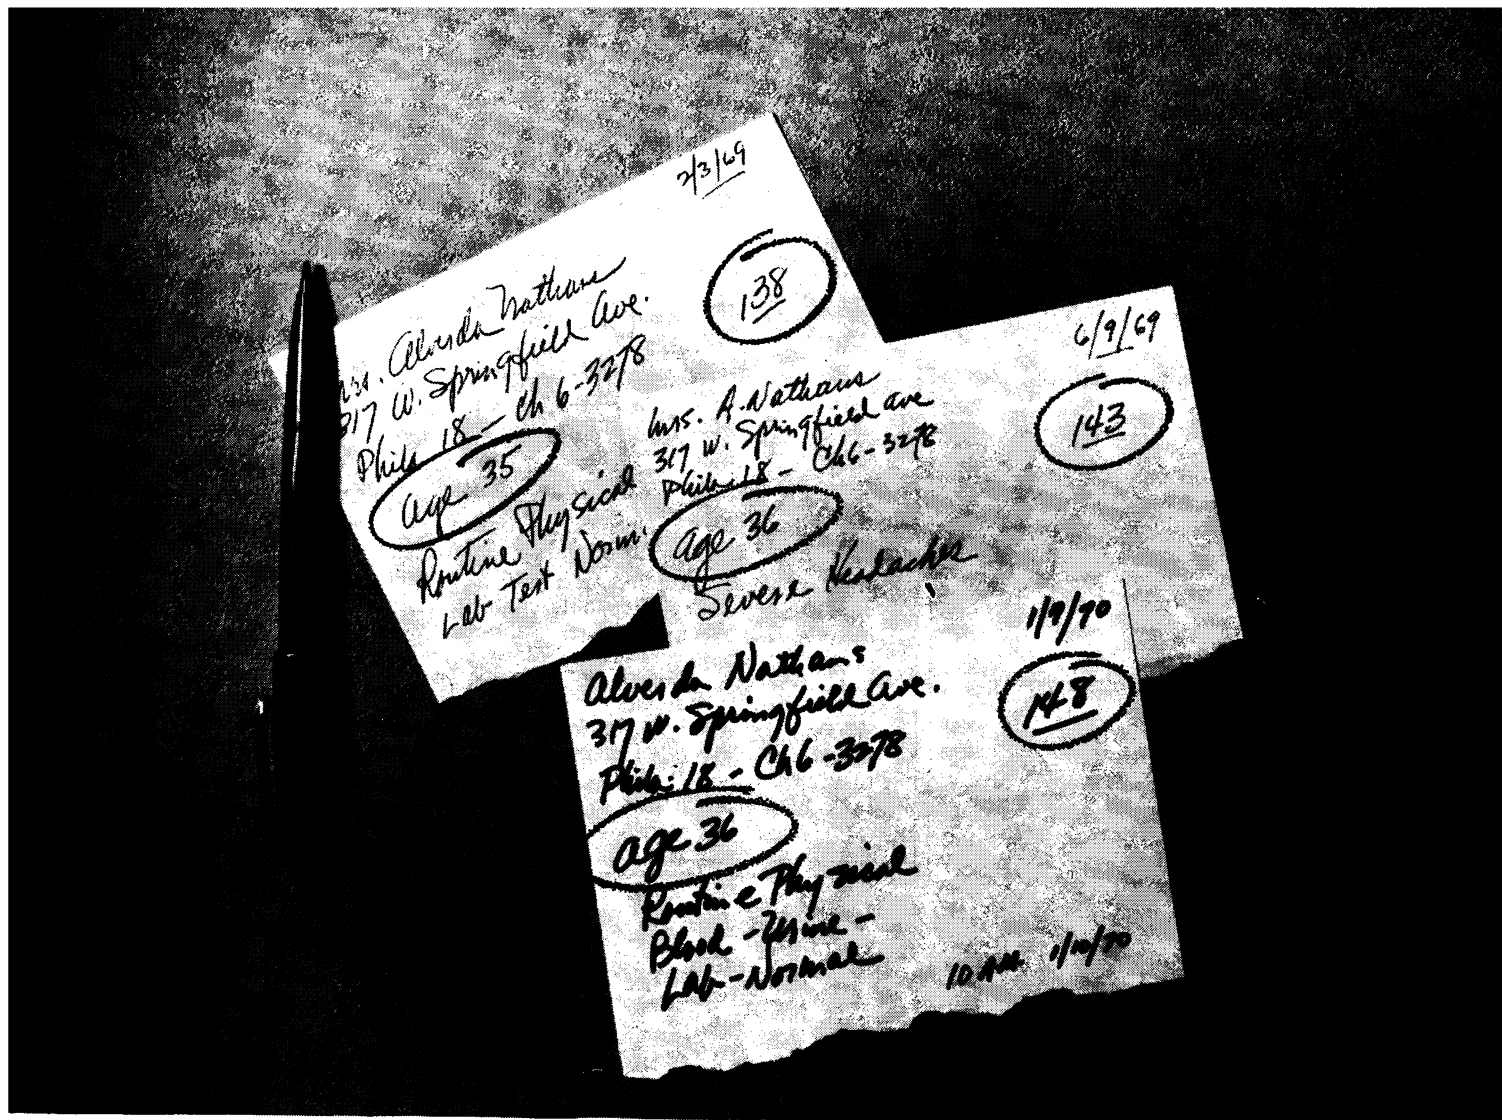 2/3/69
138
Mrs. Alverda Nathans
317 W. Springfield Ave.
Phila 18 - Ch 6-3278
age 35
Routine Physical
Lab Test Norm.
6/9/69
143
Mrs. A. Nathans
317 W. Springfield ave
Phila 18 - Ch 6-3278
age 36
Severe Headaches
1/9/70
148
Alverda Nathans
317 W. Springfield Ave.
Phila. 18 - Ch 6-3278
age 36
Routine Physical
Blood - Urine -
Lab - Normal
10 AM 1/10/70